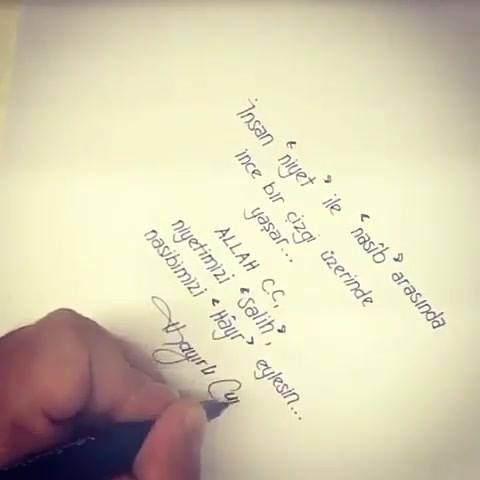 İnsan 'niyet' ile 'nasîb' arasında
ince bir çizgi üzerinde
yaşar...
ALLAH C.C,
niyetimizi 'Salih',
nasibimizi 'Hâyr' eylesin...
Hayırlı Cu